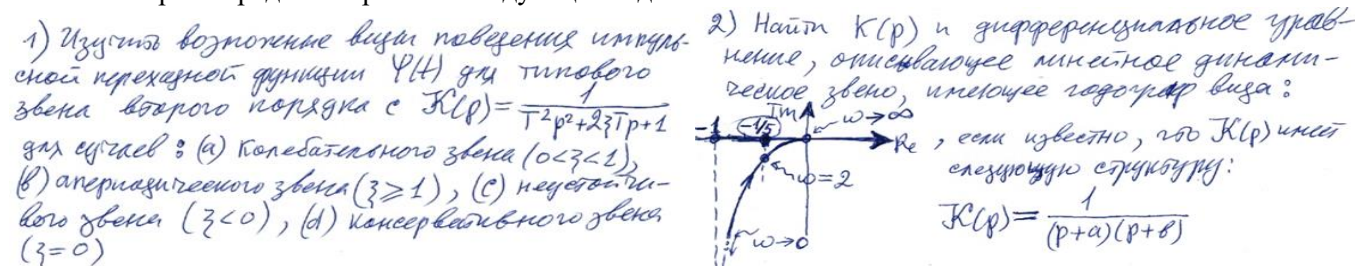 1) Изучить возможные виды поведения импуль-
сной переходной функции Ψ(t) для типового
звена второго порядка с K(p) = 1 / (T²p²+2ξTp+1)
для случаев: (a) колебательного звена (0<ξ<1),
(b) апериодического звена (ξ⩾1), (c) неустойчи-
вого звена (ξ<0), (d) консервативного звена
(ξ=0)
2) Найти K(p) и дифференциальное урав-
нение, описывающее линейное динами-
ческое звено, имеющее годограф вида:
Im
ω→∞
-1
-1/5
Re
, если известно, что K(p) имеет
следующую структуру:
ω=2
K(p) = 1 / ((p+a)(p+b))
ω→0